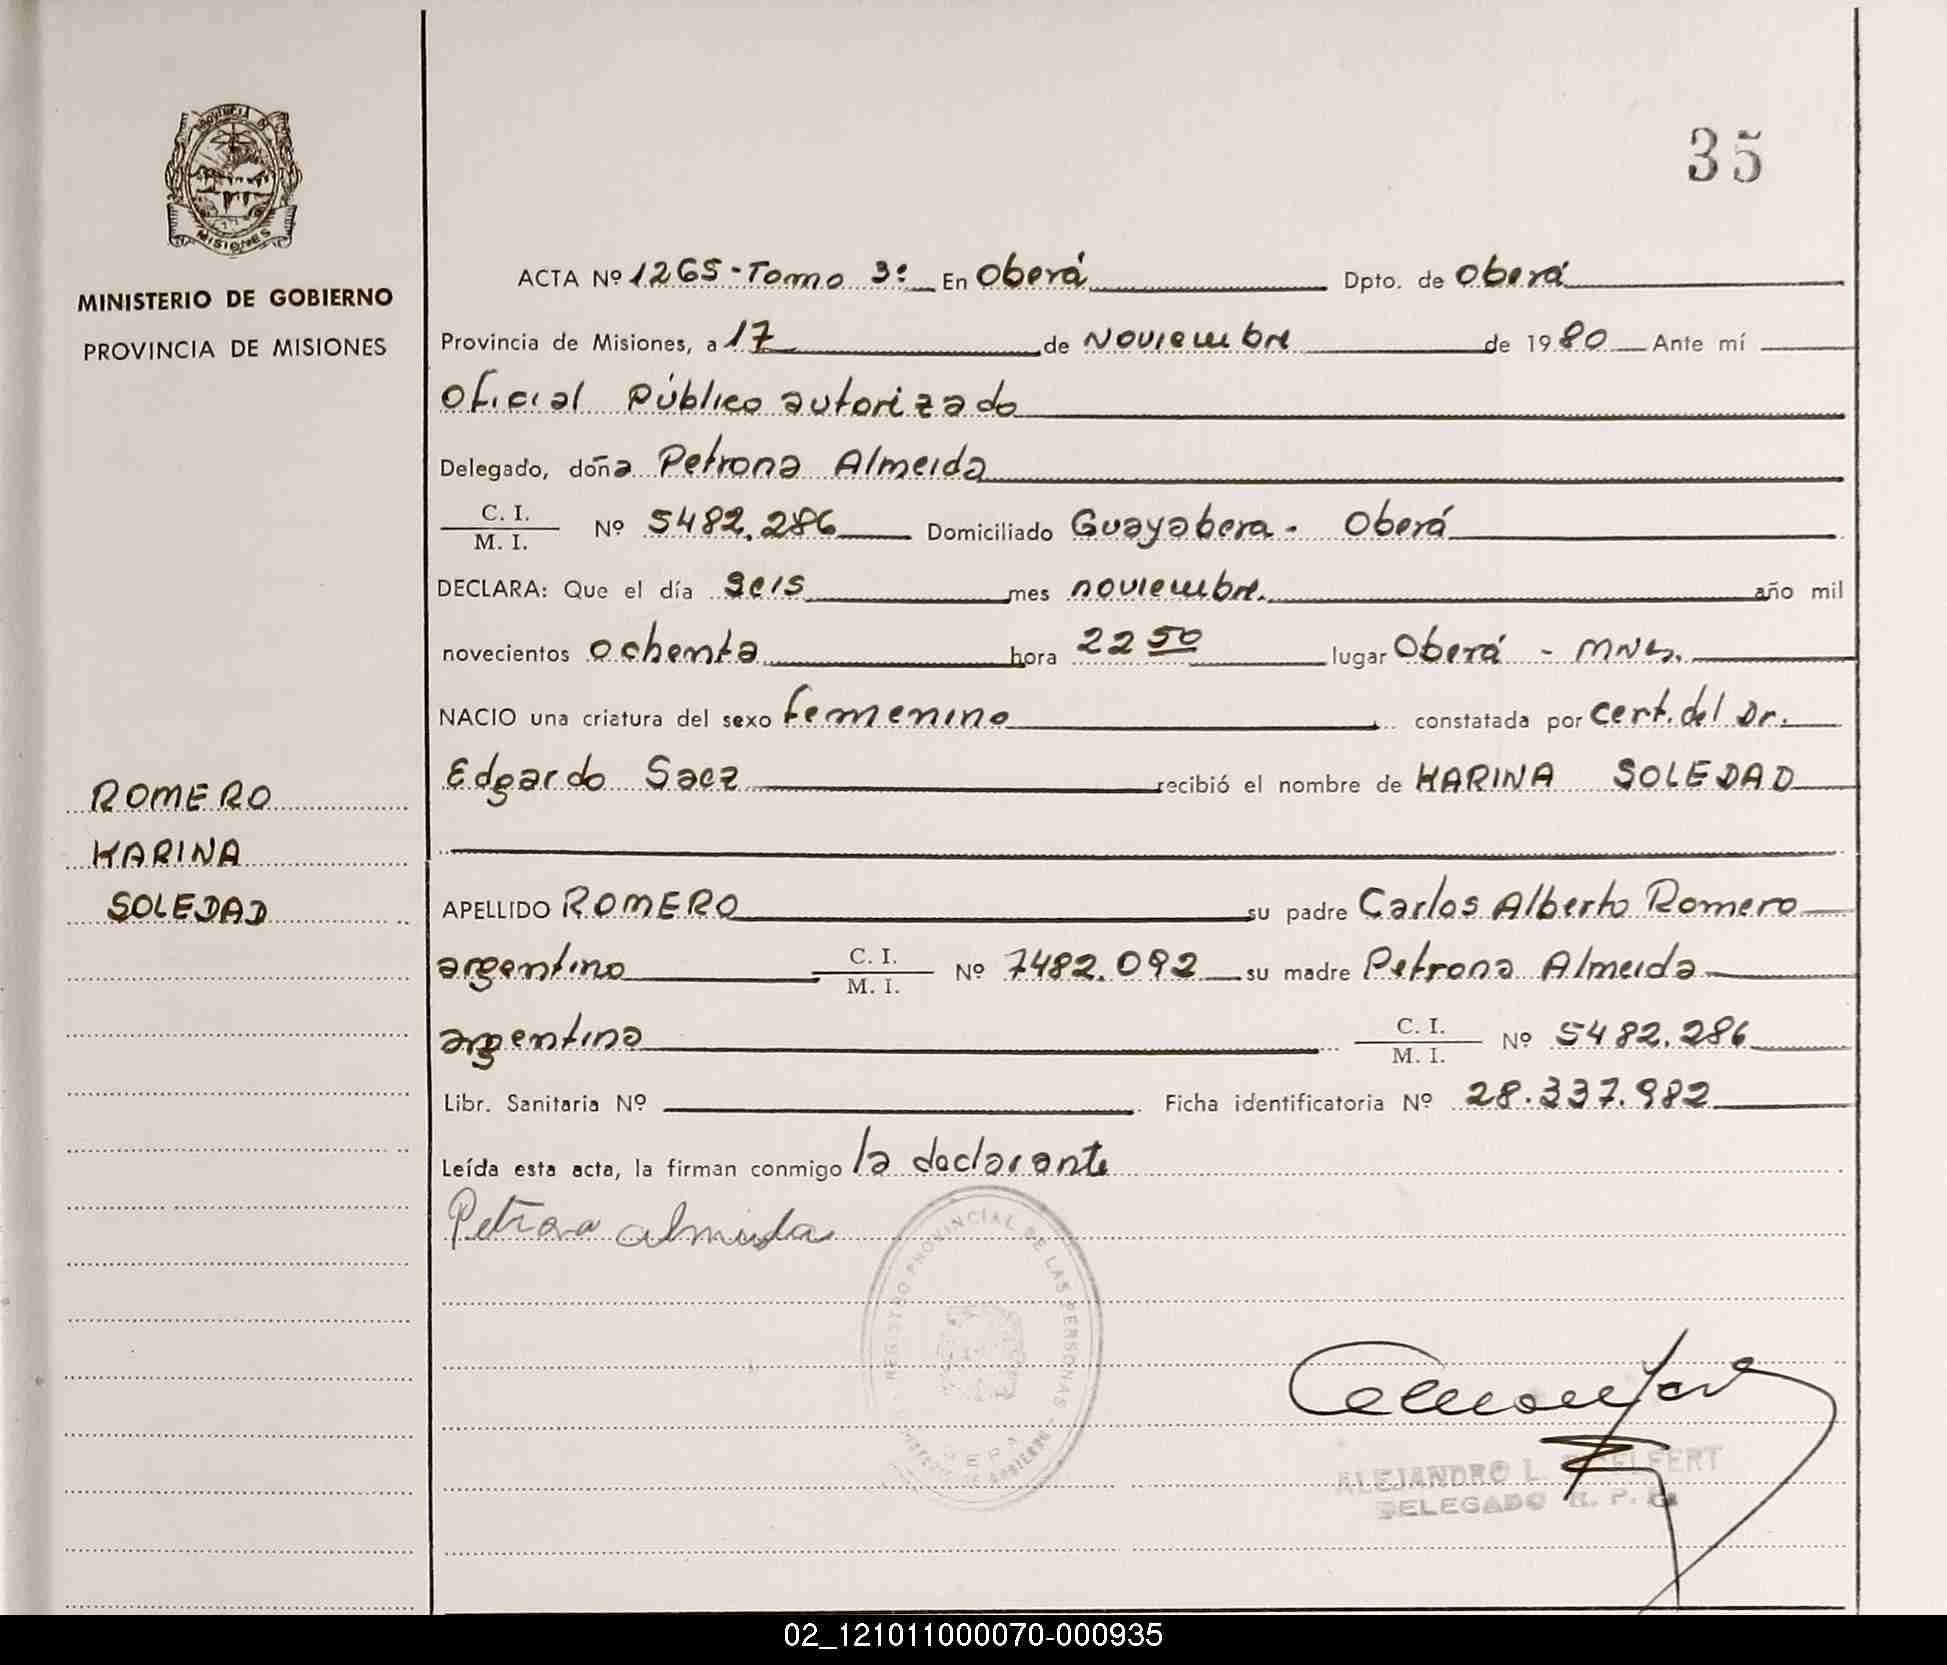 PROVINCIA DE
MISIONES
MINISTERIO DE GOBIERNO
PROVINCIA DE MISIONES
ROMERO
KARINA
SOLEDAD
35
ACTA Nº 1265-Tomo 3º En Oberá Dpto. de Oberá
Provincia de Misiones, a 17 de Noviembre de 1980 Ante mí
Oficial Público autorizado
Delegado, doña Petrona Almeida
C. I.
M. I. Nº 5482.286 Domiciliado Guayabera - Oberá
DECLARA: Que el día seis mes noviembre. año mil
novecientos ochenta hora 22 50 lugar Oberá - Mnes.
NACIO una criatura del sexo femenino constatada por cert. del Dr.
Edgardo Saez recibió el nombre de KARINA SOLEDAD
APELLIDO ROMERO su padre Carlos Alberto Romero
argentino C. I.
M. I. Nº 7482.092 su madre Petrona Almeida
argentina C. I.
M. I. Nº 5482.286
Libr. Sanitaria Nº Ficha identificatoria Nº 28.337.982
Leída esta acta, la firman conmigo la declarante
Petrona almeida
REGISTRO PROVINCIAL DE LAS PERSONAS
ALEJANDRO L.
DELEGADO R. P.
02_121011000070-000935